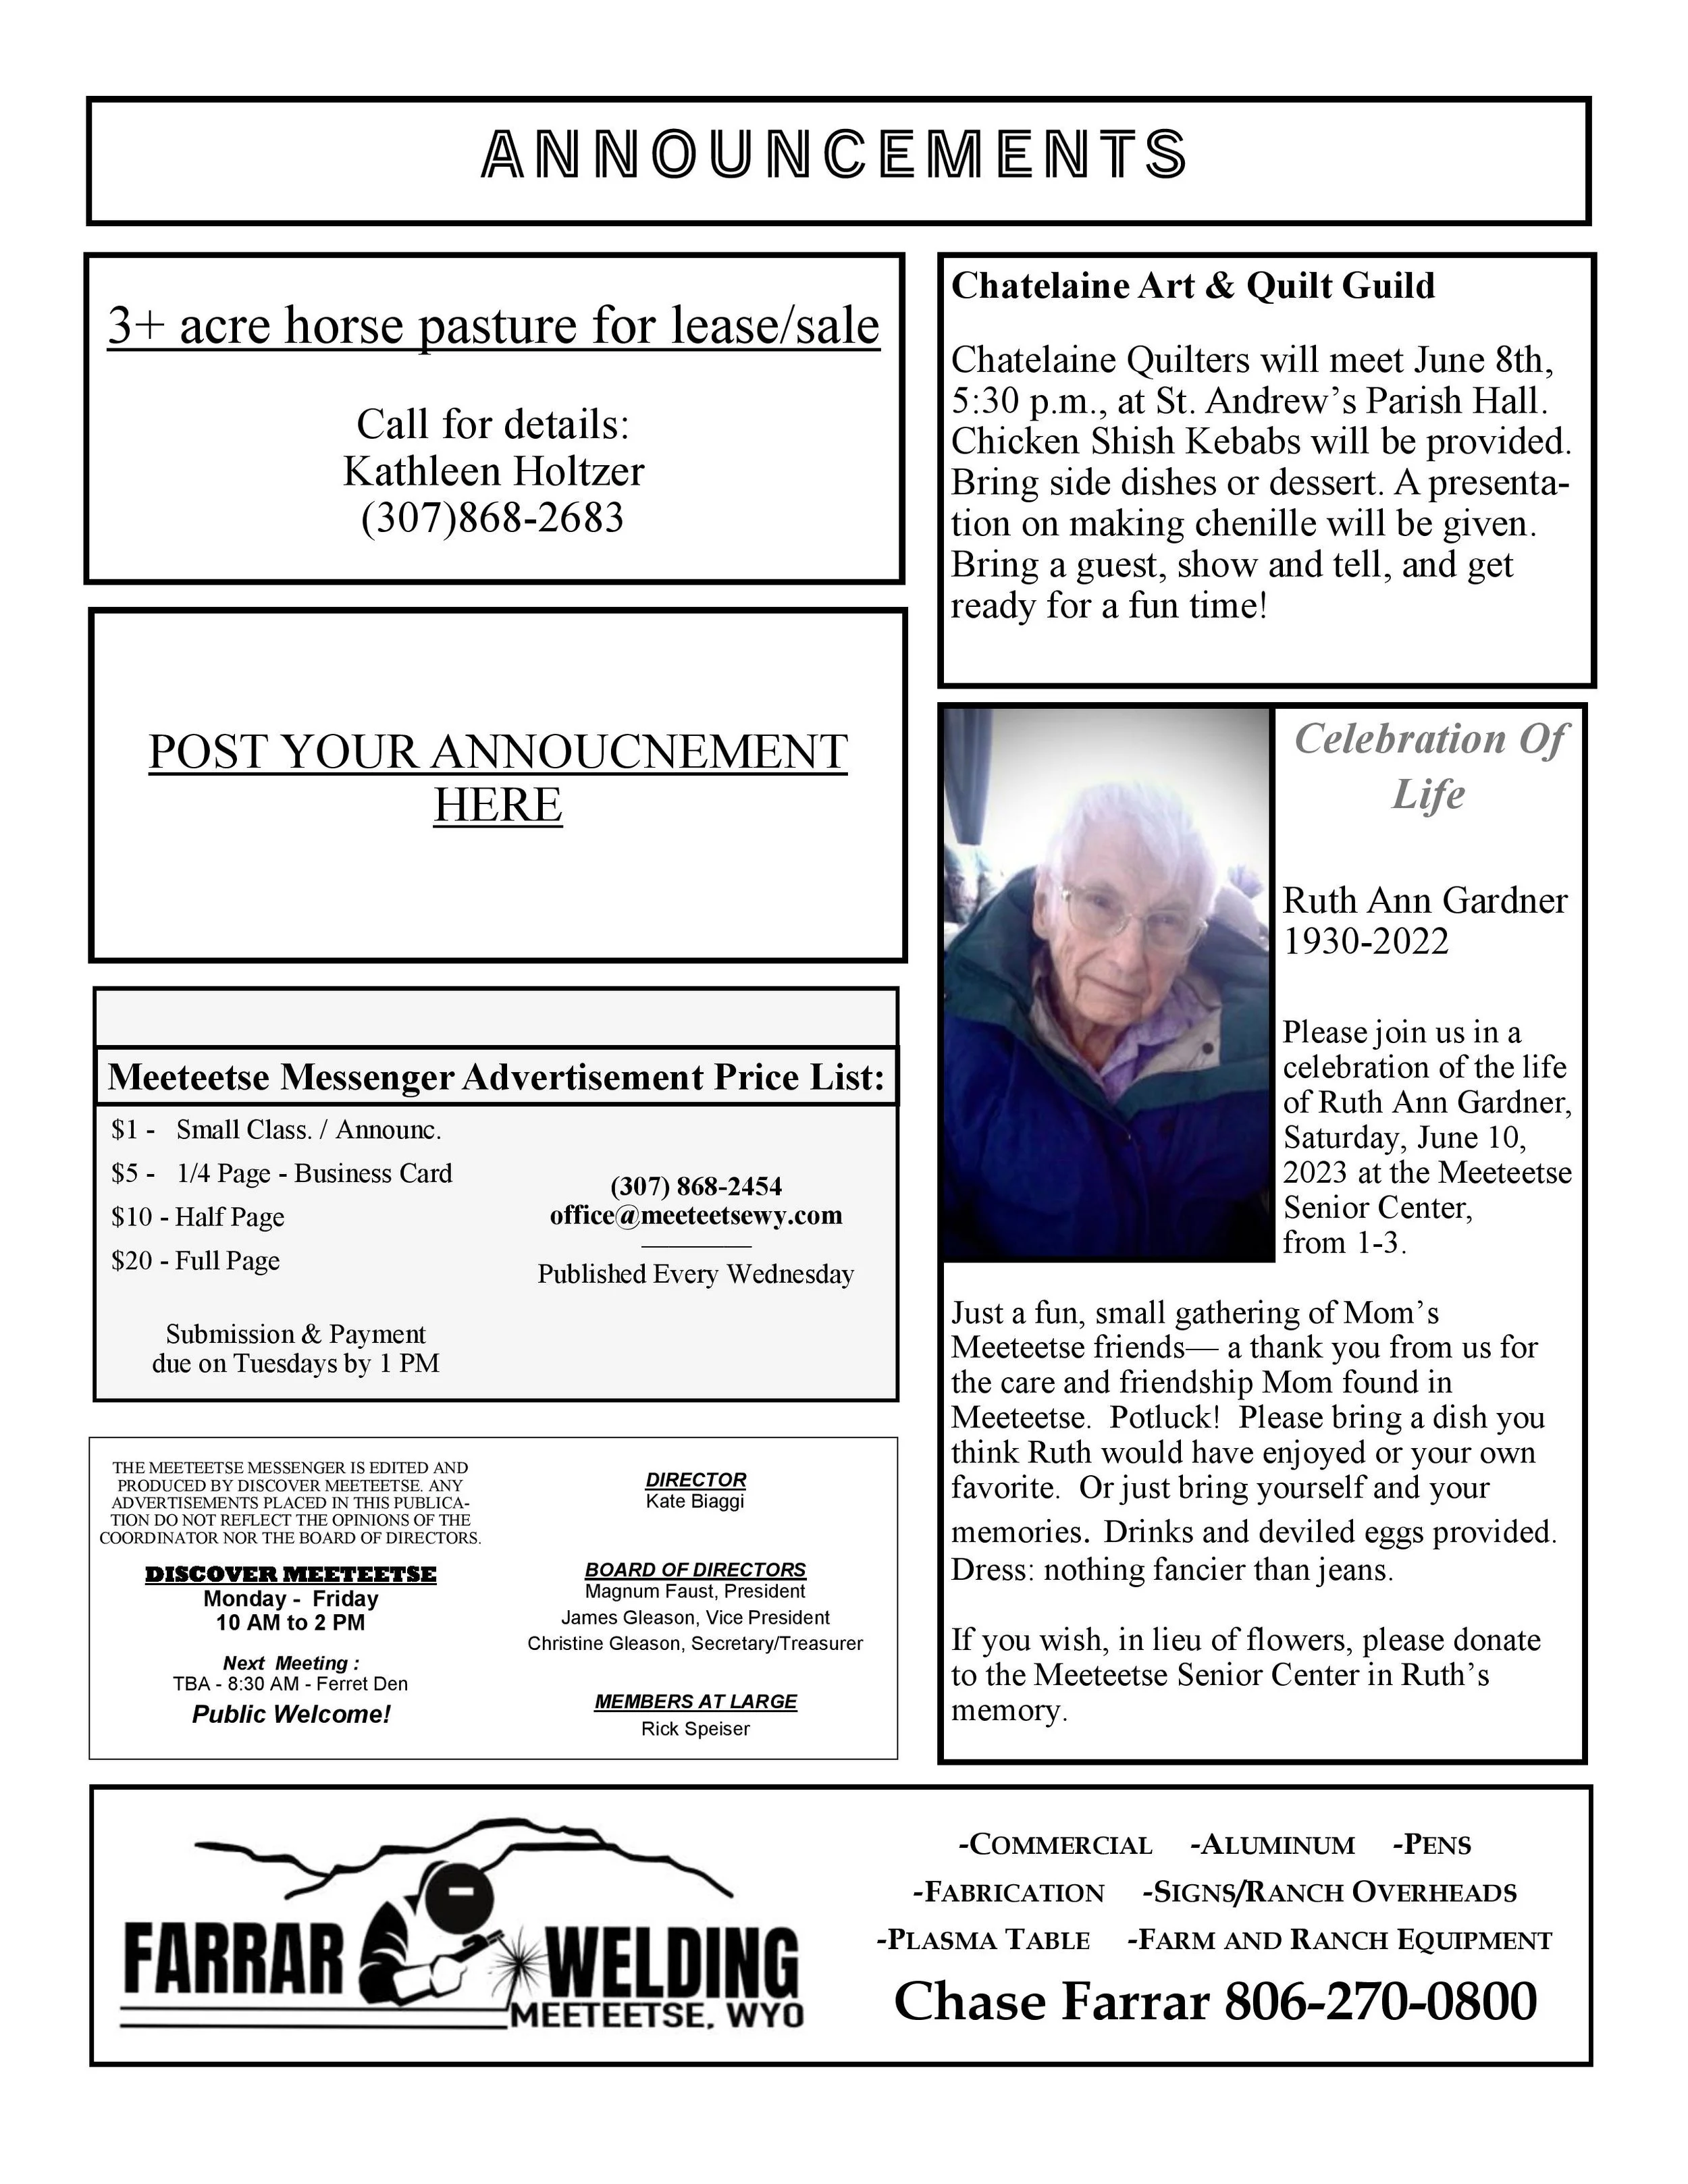 ANNOUNCEMENTS
3+ acre horse pasture for lease/sale
Call for details:
Kathleen Holtzer
(307)868-2683
POST YOUR ANNOUCNEMENT
HERE
Meeteetse Messenger Advertisement Price List:
$1 - Small Class. / Announc.
$5 - 1/4 Page - Business Card
$10 - Half Page
$20 - Full Page
Submission & Payment
due on Tuesdays by 1 PM
(307) 868-2454
office@meeteetsewy.com
Published Every Wednesday
THE MEETEETSE MESSENGER IS EDITED AND
PRODUCED BY DISCOVER MEETEETSE. ANY
ADVERTISEMENTS PLACED IN THIS PUBLICA-
TION DO NOT REFLECT THE OPINIONS OF THE
COORDINATOR NOR THE BOARD OF DIRECTORS.
DISCOVER MEETEETSE
Monday - Friday
10 AM to 2 PM
Next Meeting :
TBA - 8:30 AM - Ferret Den
Public Welcome!
DIRECTOR
Kate Biaggi
BOARD OF DIRECTORS
Magnum Faust, President
James Gleason, Vice President
Christine Gleason, Secretary/Treasurer
MEMBERS AT LARGE
Rick Speiser
Chatelaine Art & Quilt Guild
Chatelaine Quilters will meet June 8th,
5:30 p.m., at St. Andrew’s Parish Hall.
Chicken Shish Kebabs will be provided.
Bring side dishes or dessert. A presenta-
tion on making chenille will be given.
Bring a guest, show and tell, and get
ready for a fun time!
Celebration Of
Life
Ruth Ann Gardner
1930-2022
Please join us in a
celebration of the life
of Ruth Ann Gardner,
Saturday, June 10,
2023 at the Meeteetse
Senior Center,
from 1-3.
Just a fun, small gathering of Mom’s
Meeteetse friends— a thank you from us for
the care and friendship Mom found in
Meeteetse. Potluck! Please bring a dish you
think Ruth would have enjoyed or your own
favorite. Or just bring yourself and your
memories. Drinks and deviled eggs provided.
Dress: nothing fancier than jeans.
If you wish, in lieu of flowers, please donate
to the Meeteetse Senior Center in Ruth’s
memory.
FARRAR WELDING
MEETEETSE, WYO
-COMMERCIAL -ALUMINUM -PENS
-FABRICATION -SIGNS/RANCH OVERHEADS
-PLASMA TABLE -FARM AND RANCH EQUIPMENT
Chase Farrar 806-270-0800